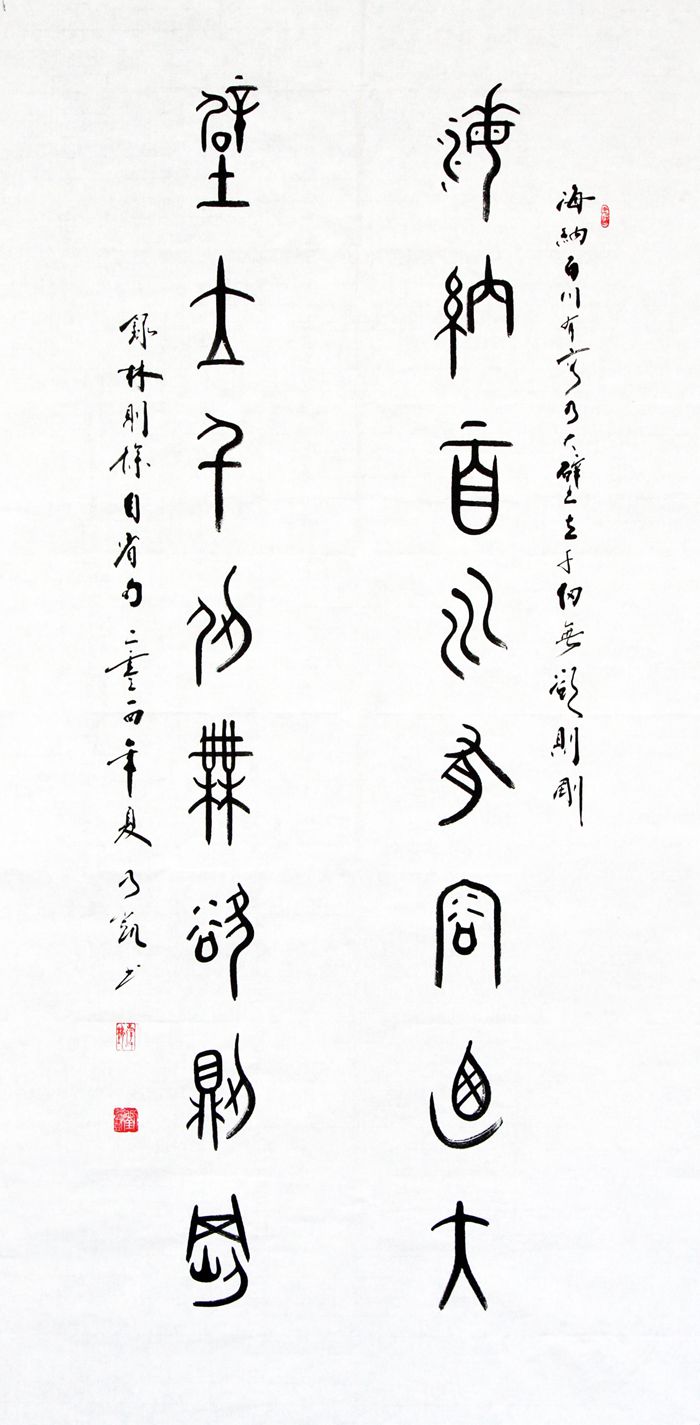 海納百川有容乃大壁立千仞無欲則剛
海納百川有容迺大
壁立千仞無欲則剛
錄林則徐自省句 二零一四年夏 乃凱書